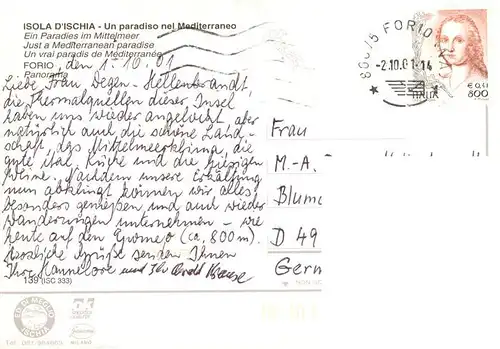 ISOLA D'ISCHIA - Un paradiso nel Mediterraneo
Ein Paradies im Mittelmeer
Just a Mediterranean paradise
Un vrai paradis de Mediterranée
FORIO
Panorama
den 1. 10. 01
Liebe Frau Degen-Hellenbrandt,
die Thermalquellen dieser Insel
haben uns wieder angelockt, aber
natürlich auch die schöne Land-
schaft, das Mittelmeerklima, die
gute ital. Küche und die hiesigen
Weine. Nachdem unsere Erkältung
nun abklingt können wir alles
besonders genießen und auch wieder
Wanderungen unternehmen - wie
heute auf den Epomeo (ca. 800m).
Herzliche Grüße senden Ihnen
Ihre Hannelore und Ihr Krause
139 (ISC 333)
80075 FORIO
-2.10.01-14
ITALIA
€ 0,41
800
Frau
M.-A.
Blume
D 49
Germ
ED. DI MEGLIO
ISCHIA
MILANO